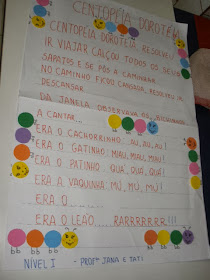 CENTOPEIA DOROTÉIA
CENTOPEIA DOROTEIA RESOLVEU
IR VIAJAR CALÇOU TODOS OS SEUS
SAPATOS E SE PÔS A CAMINHAR
NO CAMINHO FICOU CANSADA, RESOLVEU
DESCANSAR
DA JANELA OBSERVAVA OS BICHINHOS
A CANTAR...
ERA O CACHORRINHO: AU, AU, AU!
ERA O GATINHO: MIAU, MIAU, MIAU!
ERA O PATINHO: QUÁ, QUÁ, QUÁ!
ERA A VAQUINHA: MÚ, MÚ, MÚ!
ERA O ...
ERA O LEÃO.... RARRRRRRR!!!
NÍVEL I - PROFªS JANA E TATI